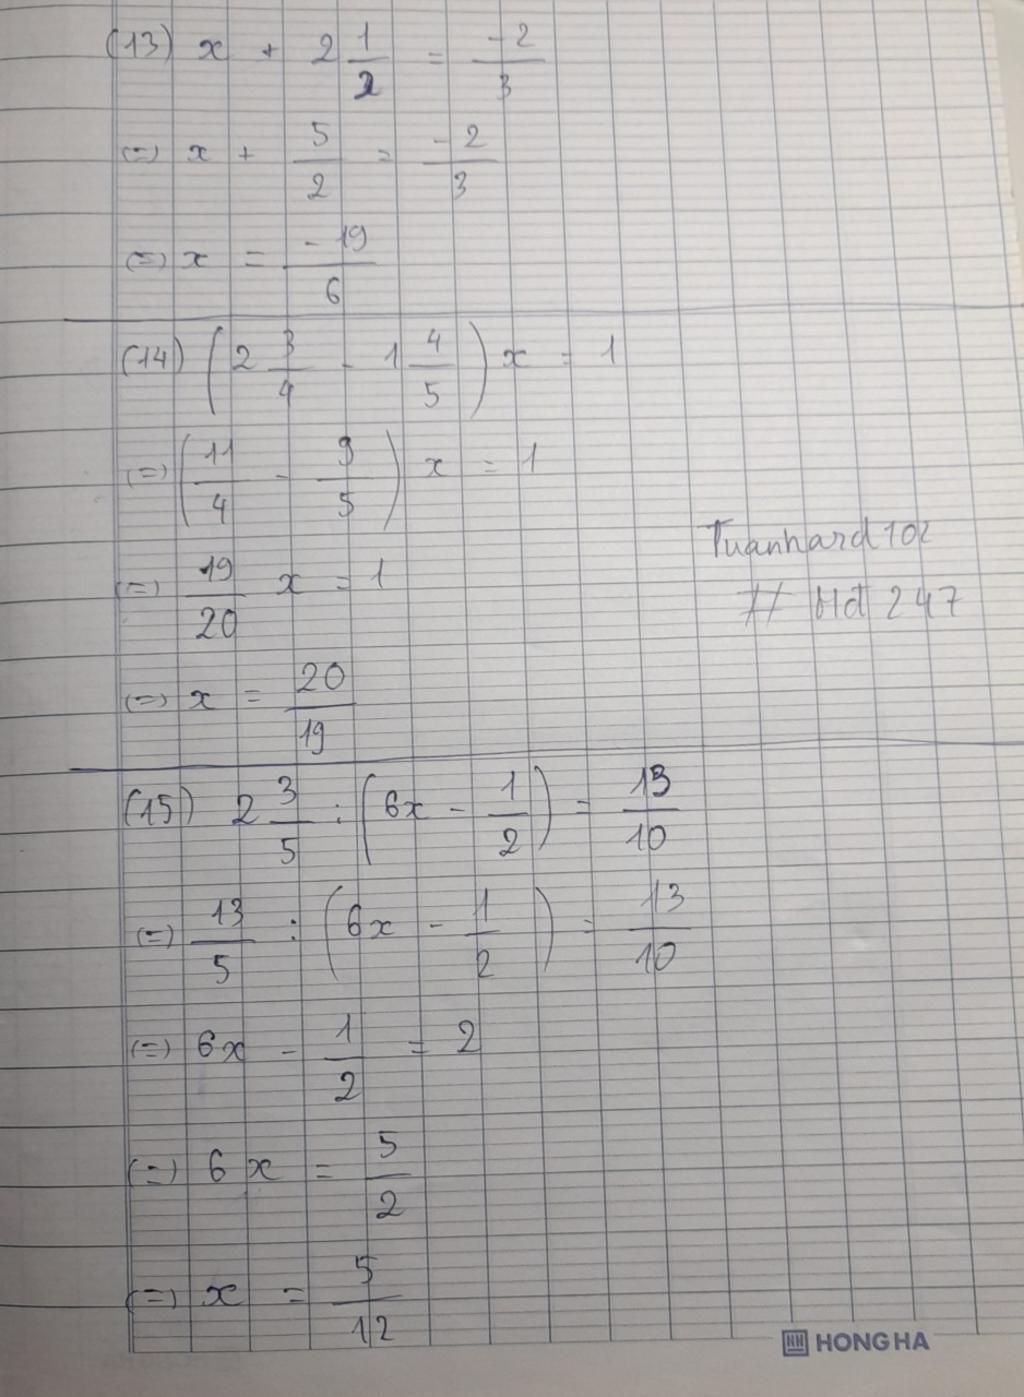 (13) x + 2 1/2 = -2/3
(=) x + 5/2 = -2/3
(=) x = -19/6
(14) (2 3/4 - 1 4/5) x = 1
(=) (11/4 - 9/5) x = 1
(=) 19/20 x = 1
Tuanhard102
// Hd 247
(=) x = 20/19
(15) 2 3/5 : (6x - 1/2) = 13/10
(=) 13/5 : (6x - 1/2) = 13/10
(=) 6x - 1/2 = 2
(=) 6x = 5/2
(=) x = 5/12
HONG HA